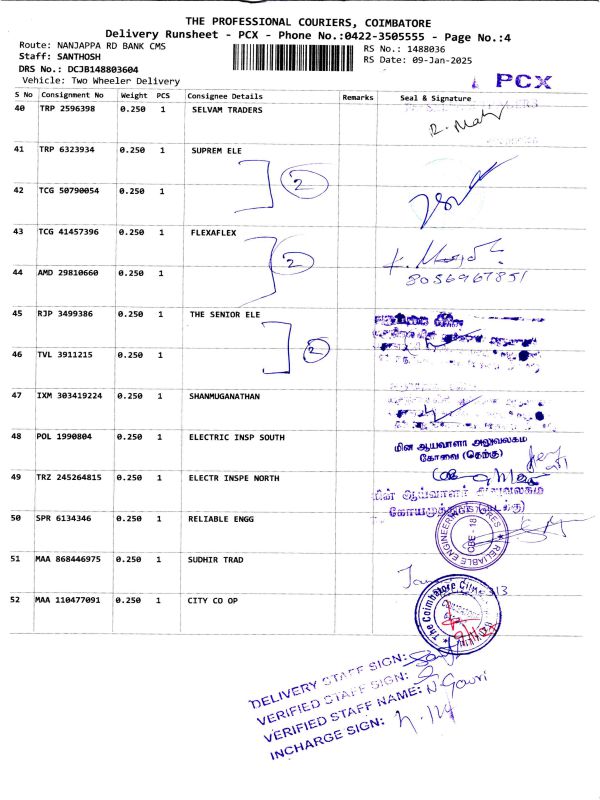 THE PROFESSIONAL COURIERS, COIMBATORE
Delivery Runsheet - PCX - Phone No.:0422-3505555 - Page No.:4
Route: NANJAPPA RD BANK CMS
RS No.: 1488036
Staff: SANTHOSH
RS Date: 09-Jan-2025
DRS No.: DCJB148803604
Vehicle: Two Wheeler Delivery
PCX
S No Consignment No Weight PCS Consignee Details Remarks Seal & Signature
40 TRP 2596398 0.250 1 SELVAM TRADERS
41 TRP 6323934 0.250 1 SUPREM ELE
2
42 TCG 50790054 0.250 1
43 TCG 41457396 0.250 1 FLEXAFLEX
2
44 AMD 29810660 0.250 1
8056967851
45 RJP 3499386 0.250 1 THE SENIOR ELE
2
46 TVL 3911215 0.250 1
47 IXM 303419224 0.250 1 SHANMUGANATHAN
48 POL 1990804 0.250 1 ELECTRIC INSP SOUTH
மின் ஆய்வாளர் அலுவலகம்
கோவை (தெற்கு)
49 TRZ 245264815 0.250 1 ELECTR INSPE NORTH
மின் ஆய்வாளர் அலுவலகம்
50 SPR 6134346 0.250 1 RELIABLE ENGG
RELIABLE ENGINEERING STORES
CBE - 18
51 MAA 868446975 0.250 1 SUDHIR TRAD
52 MAA 110477091 0.250 1 CITY CO OP
The Coimbatore City
DELIVERY STAFF SIGN:
VERIFIED STAFF SIGN:
VERIFIED STAFF NAME: N Gowri
INCHARGE SIGN: